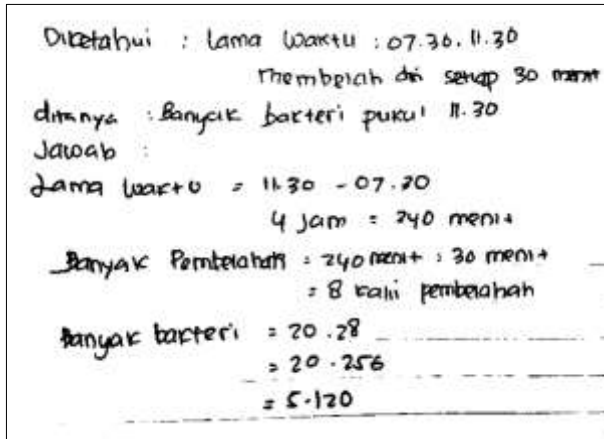 Diketahui : Lama Waktu : 07.30. 11.30
Membelah diri setiap 30 menit
ditanya : Banyak bakteri pukul 11.30
Jawab :
Lama Waktu = 11.30 - 07.30
4 jam = 240 menit
Banyak Pembelahan = 240 menit : 30 menit
= 8 kali pembelahan
Banyak bakteri = 20 . 28
= 20 . 256
= 5.120